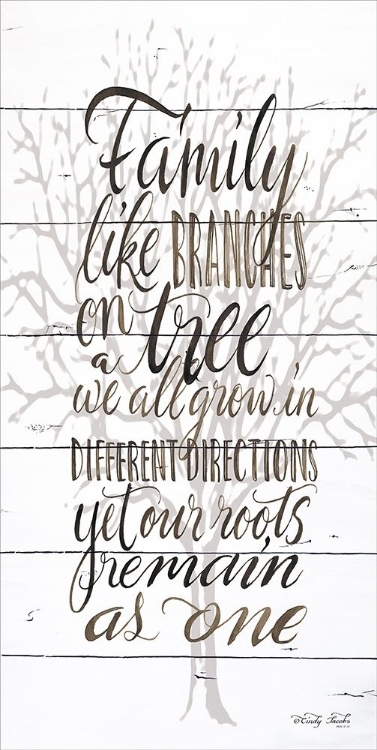 Family
like BRANCHES
on a tree
we all grow in
DIFFERENT DIRECTIONS
yet our roots
remain
as one
© Cindy Jacobs